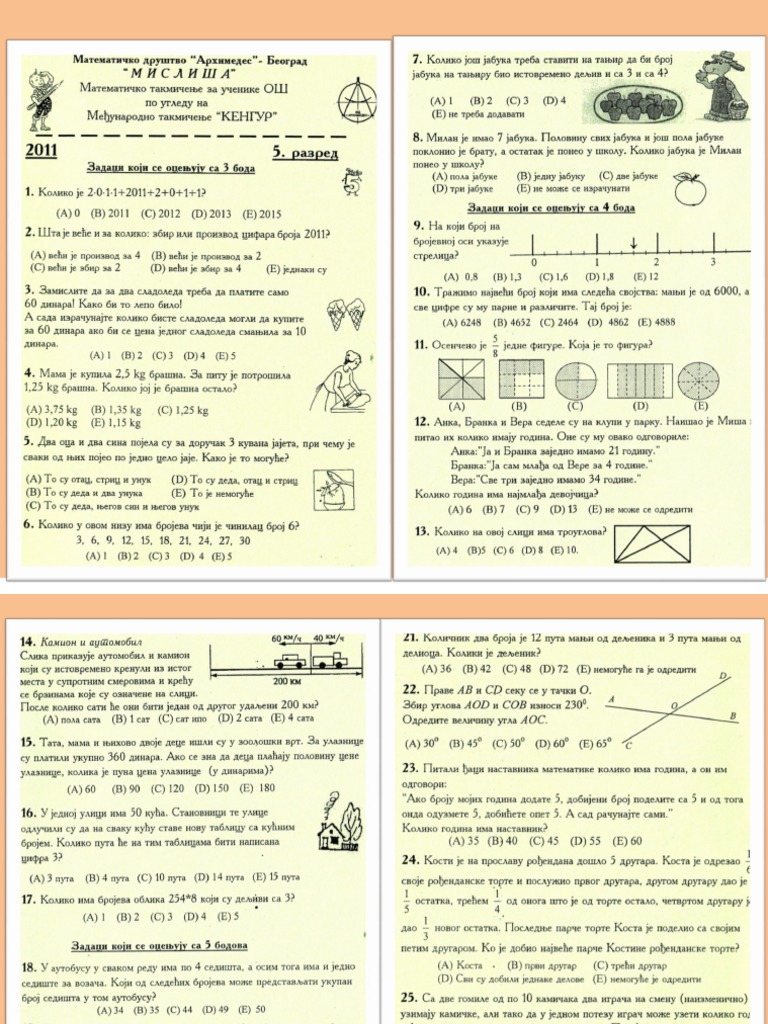 Математичко друштво "Архимедес"- Београд
"МИСЛИША"
Математичко такмичење за ученике ОШ
по угледу на
Међународно такмичење "КЕНГУР"
2011 5. разред
Задаци који се оцењују са 3 бода
1. Колико је 2·0·1·1+2011+2+0+1+1?
(A) 0 (B) 2011 (C) 2012 (D) 2013 (E) 2015
2. Шта је веће и за колико: збир или производ цифара броја 2011?
(A) већи је производ за 4 (B) већи је производ за 2
(C) већи је збир за 2 (D) већи је збир за 4 (E) једнаки су
3. Замислите да за два сладоледа треба да платите само
60 динара! Како би то лепо било!
А сада израчунајте колико бисте сладоледа могли да купите
за 60 динара ако би се цена једног сладоледа смањила за 10
динара.
(A) 1 (B) 2 (C) 3 (D) 4 (E) 5
4. Мама је купила 2,5 kg брашна. За питу је потрошила
1,25 kg брашна. Колико јој је брашна остало?
(A) 3,75 kg (B) 1,35 kg (C) 1,25 kg
(D) 1,20 kg (E) 1,15 kg
5. Два оца и два сина појела су за доручак 3 кувана јајета, при чему је
сваки од њих појео по једно цело јаје. Како је то могуће?
(A) То су отац, стриц и унук (D) То су деда, отац и стриц
(B) То су деда и два унука (E) То је немогуће
(C) То су деда, његов син и његов унук
6. Колико у овом низу има бројева чији је чинилац број 6?
3, 6, 9, 12, 15, 18, 21, 24, 27, 30
(A) 1 (B) 2 (C) 3 (D) 4 (E) 5
7. Колико још јабука треба ставити на тањир да би број
јабука на тањиру био истовремено дељив и са 3 и са 4?
(A) 1 (B) 2 (C) 3 (D) 4
(E) не треба додавати
8. Милан је имао 7 јабука. Половину свих јабука и још пола јабуке
поклонио је брату, а остатак је понео у школу. Колико јабука је Милан
понео у школу?
(A) пола јабуке (B) једну јабуку (C) две јабуке
(D) три јабуке (E) не може се израчунати
Задаци који се оцењују са 4 бода
9. На који број на
бројевној оси указује
стрелица?
0 1 2 3
(A) 0,8 (B) 1,3 (C) 1,6 (D) 1,8 (E) 12
10. Тражимо највећи број који има следећа својства: мањи је од 6000, а
све цифре су му парне и различите. Тај број је:
(A) 6248 (B) 4652 (C) 2464 (D) 4862 (E) 4888
11. Осенчено је 5/8 једне фигуре. Која је то фигура?
(A) (B) (C) (D) (E)
12. Анка, Бранка и Вера седеле су на клупи у парку. Наишао је Миша
питао их колико имају година. Оне су му овако одговориле:
Анка:"Ја и Бранка заједно имамо 21 годину."
Бранка:"Ја сам млађа од Вере за 4 године."
Вера:"Све три заједно имамо 34 године."
Колико година има најмлађа девојчица?
(A) 6 (B) 7 (C) 9 (D) 13 (E) не може се одредити
13. Колико на овој слици има троуглова?
(A) 4 (B)5 (C) 6 (D) 8 (E) 10.
14. Камион и аутомобил
60 км/ч 40 км/ч
Слика приказује аутомобил и камион
који су истовремено кренули из истог
места у супротним смеровима и крећу
се брзинама које су означене на слици.
200 км
После колико сати ће они бити један од другог удаљени 200 км?
(A) пола сата (B) 1 сат (C) сат ипо (D) 2 сата (E) 4 сата
15. Тата, мама и њихово двоје деце ишли су у зоолошки врт. За улазнице
су платили укупно 360 динара. Ако се зна да деца плаћају половину цене
улазнице, колика је пуна цена улазнице (у динарима)?
(A) 60 (B) 90 (C) 120 (D) 150 (E) 180
16. У једној улици има 50 кућа. Становници те улице
одлучили су да на сваку кућу ставе нову таблицу са кућним
бројем. Колико пута ће на тим таблицама бити написана
цифра 3?
(A) 3 пута (B) 4 пута (C) 10 пута (D) 14 пута (E) 15 пута
17. Колико има бројева облика 254*8 који су дељиви са 3?
(A) 1 (B) 2 (C) 3 (D) 4 (E) 5
Задаци који се оцењују са 5 бодова
18. У аутобусу у сваком реду има по 4 седишта, а осим тога има и једно
седиште за возача. Који од следећих бројева може представљати укупан
број седишта у том аутобусу?
(A) 34 (B) 35 (C) 44 (D) 49 (E) 50
21. Количник два броја је 12 пута мањи од дељеника и 3 пута мањи од
делиоца. Колики је дељеник?
(A) 36 (B) 42 (C) 48 (D) 72 (E) немогуће га је одредити
22. Праве AB и CD секу се у тачки O.
Збир углова AOD и COB износи 230⁰.
Одредите величину угла AOC.
A D O B C
(A) 30⁰ (B) 45⁰ (C) 50⁰ (D) 60⁰ (E) 65⁰
23. Питали ђаци наставника математике колико има година, а он им
одговори:
"Ако броју мојих година додате 5, добијени број поделите са 5 и од тога
онда одузмете 5, добићете опет 5. А сад рачунајте сами."
Колико година има наставник?
(A) 35 (B) 40 (C) 45 (D) 55 (E) 60
24. Кости је на прославу рођендана дошло 5 другара. Коста је одрезао 1/6
своје рођенданске торте и послужио првог другара, другом другару дао је
1/5 остатка, трећем 1/4 од онога што је од торте остало, четвртом другару
дао 1/3 новог остатка. Последње парче торте Коста је поделио са својим
петим другаром. Ко је добио највеће парче Костине рођенданске торте?
(A) Коста (B) први другар (C) трећи другар
(D) Сви су добили једнаке делове (E) немогуће је одредити
25. Са две гомиле од по 10 камичака два играча на смену (наизменично)
узимају камичке, али тако да у једном потезу играч може узети колико